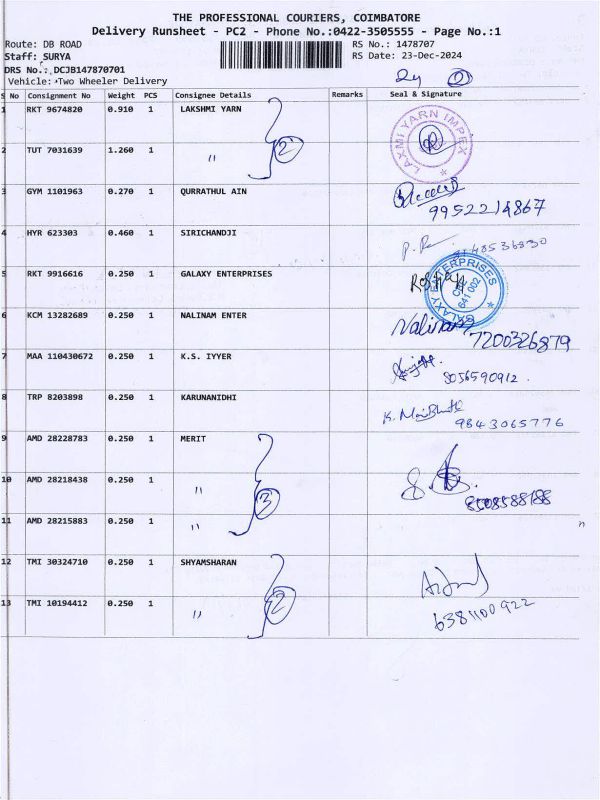 THE PROFESSIONAL COURIERS, COIMBATORE
Delivery Runsheet - PC2 - Phone No.:0422-3505555 - Page No.:1
Route: DB ROAD RS No.: 1478707
Staff: SURYA RS Date: 23-Dec-2024
DRS No.: DCJB147870701
Vehicle: Two Wheeler Delivery
S No Consignment No Weight PCS Consignee Details Remarks Seal & Signature
1 RKT 9674820 0.910 1 LAKSHMI YARN LAXMI YARN IMPEX
2 TUT 7031639 1.260 1 " 2
3 GYM 1101963 0.270 1 QURRATHUL AIN
9952214867
4 HYR 623303 0.460 1 SIRICHANDJI
5 RKT 9916616 0.250 1 GALAXY ENTERPRISES GALAXY ENTERPRISES CBE 641 002
6 KCM 13282689 0.250 1 NALINAM ENTER Nalinam
7200326879
7 MAA 110430672 0.250 1 K.S. IYYER
8056590912.
8 TRP 8203898 0.250 1 KARUNANIDHI
9843065776
9 AMD 28228783 0.250 1 MERIT
10 AMD 28218438 0.250 1 " 3
11 AMD 28215883 0.250 1 "
12 TMI 30324710 0.250 1 SHYAMSHARAN
13 TMI 10194412 0.250 1 " 2 6381100922